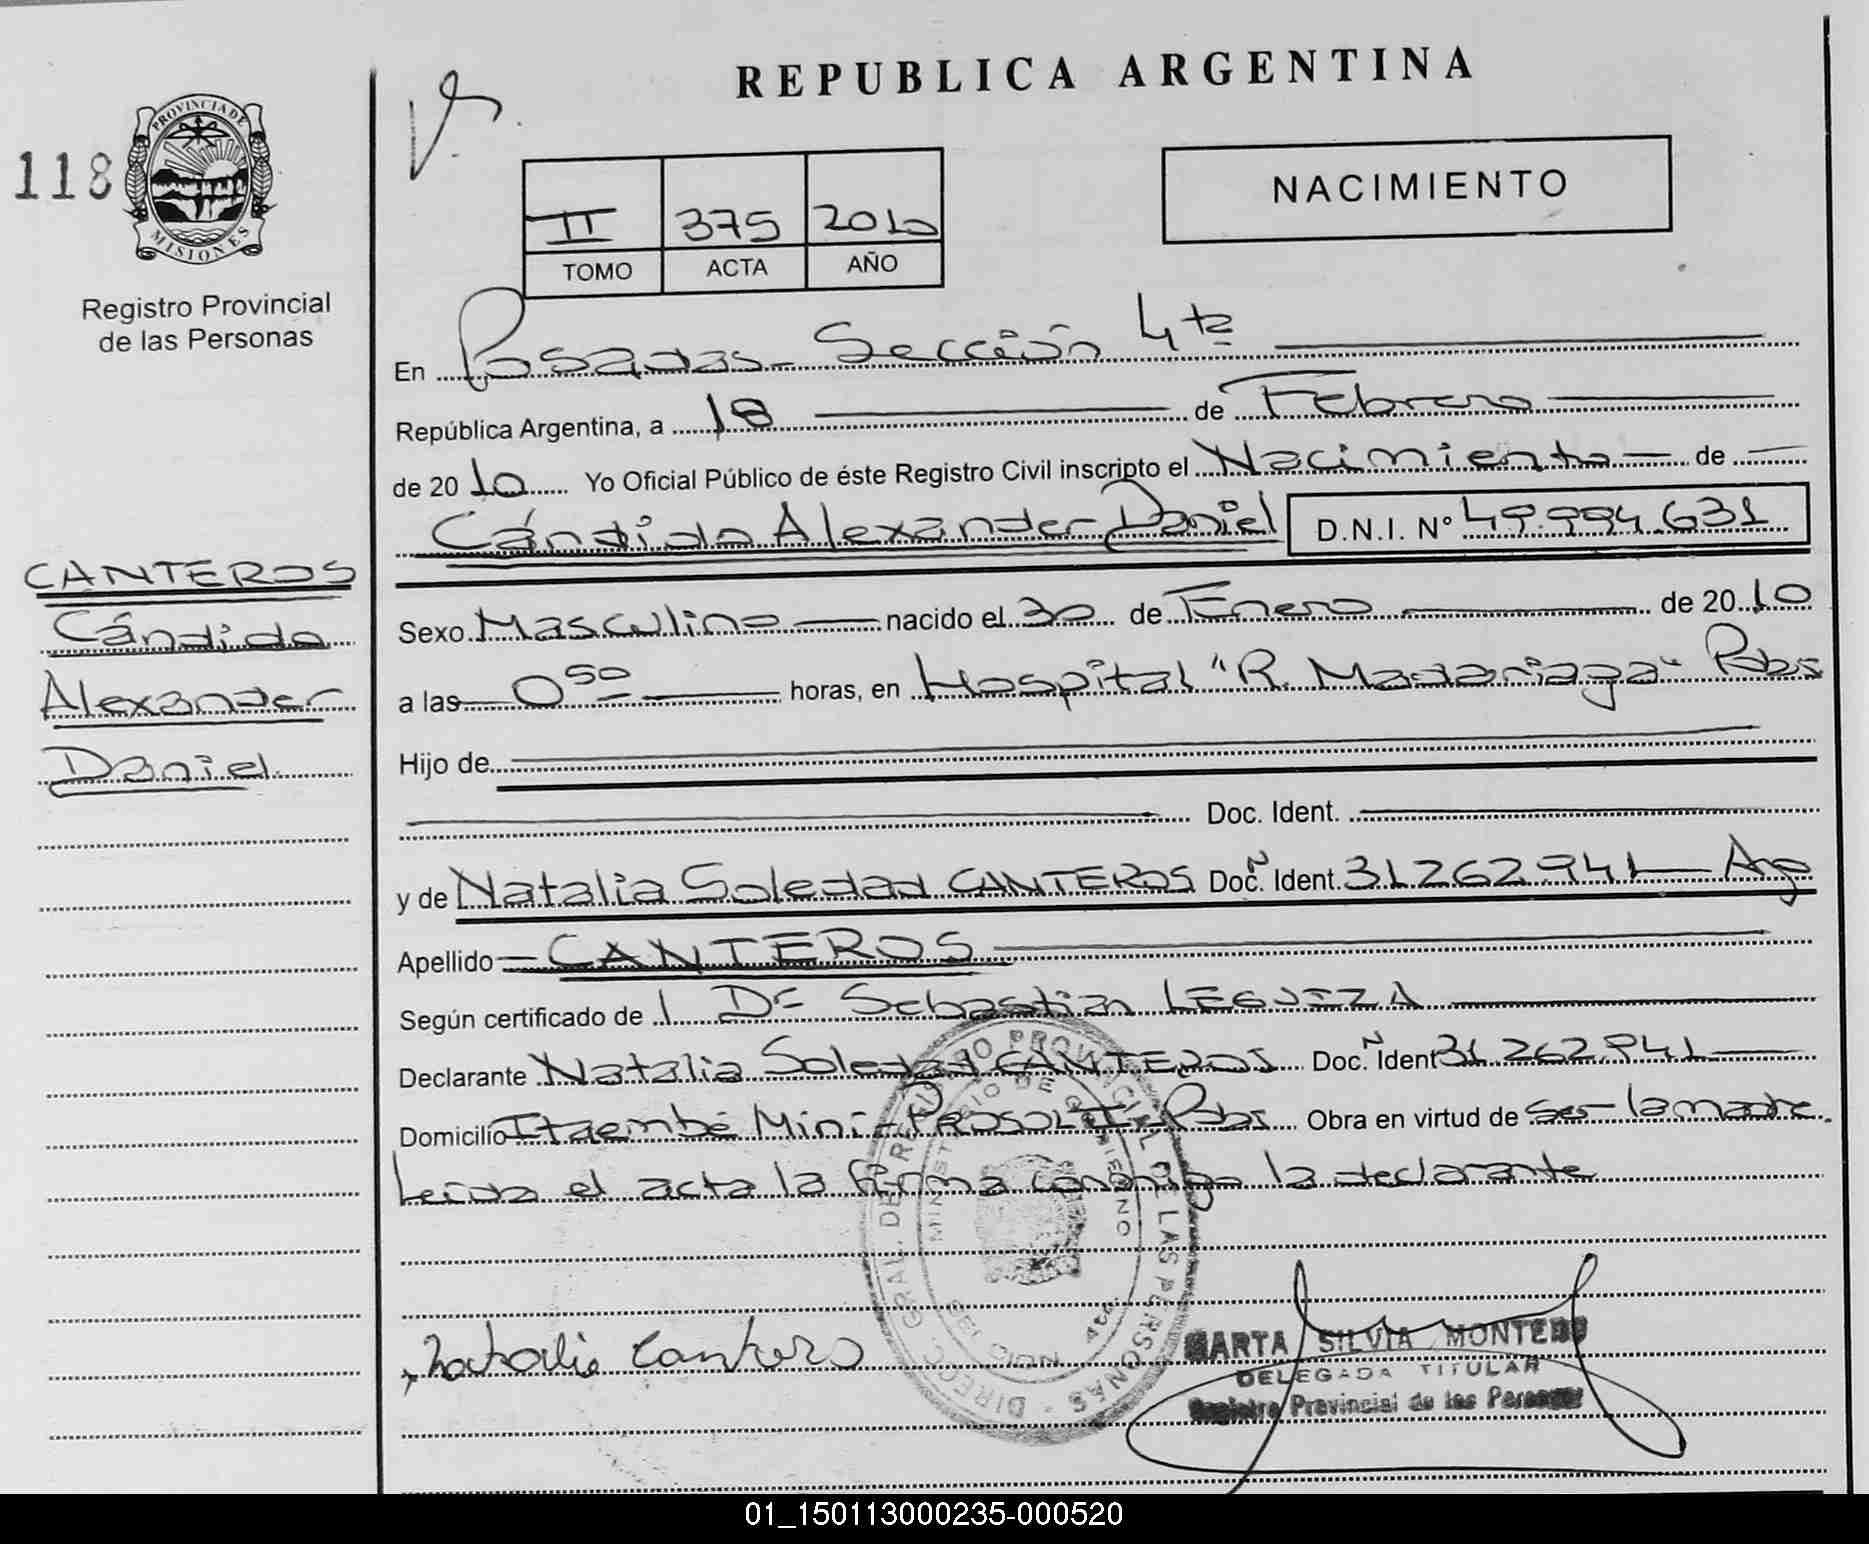 REPUBLICA ARGENTINA
118
PROVINCIA DE
MISIONES
Registro Provincial
de las Personas
II 375 2010
TOMO ACTA AÑO
NACIMIENTO
En Posadas - Sección 4ta
República Argentina, a 18 de Febrero
de 2010 Yo Oficial Público de éste Registro Civil inscripto el Nacimiento de
Cándido Alexander Daniel D.N.I. Nº 49.994.631
CANTEROS
Cándido
Alexander
Daniel
Sexo Masculino nacido el 30 de Enero de 2010
a las 0 50 horas, en Hospital "R. Madariaga" Pdas
Hijo de
Doc. Ident.
y de Natalia Soledad CANTEROS Doc. N Ident. 31.262.941 - Arg
Apellido - CANTEROS
Según certificado de Dr Sebastian LEGUIZA
Declarante Natalia Soledad CANTEROS Doc. N Ident 31.262.941
Domicilio Itaembé Mini - PROSOL II - Pdas Obra en virtud de ser la madre.
Leida el acta la firma conmigo la declarante
Natalia Canteros
DIREC. GRAL. DE REGISTRO PROVINCIAL DE LAS PERSONAS
MINISTERIO DE GOBIERNO
MARTA SILVIA MONTERO
DELEGADA TITULAR
Registro Provincial de las Personas
01_150113000235-000520